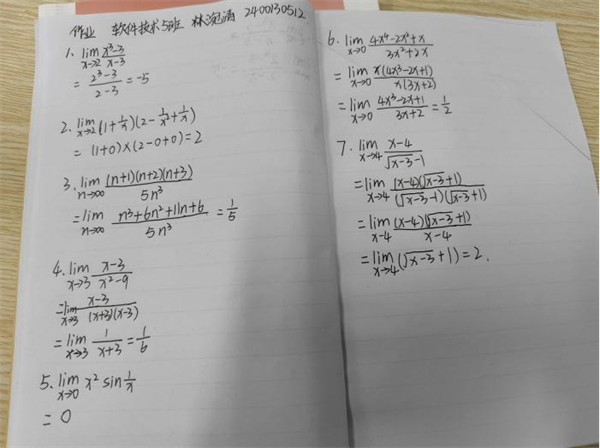 作业 软件技术5班 林滢涵 2400130512
1. lim x→2 (x³-3)/(x-3)
= (2³-3)/(2-3) = -5
2. lim x→2 (1+1/x)(2-1/x²+1/x)
= (1+0)×(2-0+0)=2
3. lim n→∞ (n+1)(n+2)(n+3)/5n³
= lim n→∞ (n³+6n²+11n+6)/5n³ = 1/5
4. lim x→3 (x-3)/(x²-9)
= lim x→3 (x-3)/(x+3)(x-3)
= lim x→3 1/(x+3) = 1/6
5. lim x→0 x² sin 1/x
= 0
6. lim x→0 (4x⁴-2x²+x)/(3x²+2x)
= lim x→0 x(4x³-2x+1)/x(3x+2)
= lim x→0 (4x³-2x+1)/(3x+2) = 1/2
7. lim x→4 (x-4)/(√(x-3)-1)
= lim x→4 (x-4)(√(x-3)+1)/(√(x-3)-1)(√(x-3)+1)
= lim x-4 (x-4)(√(x-3)+1)/(x-4)
= lim x→4 (√(x-3)+1)=2.